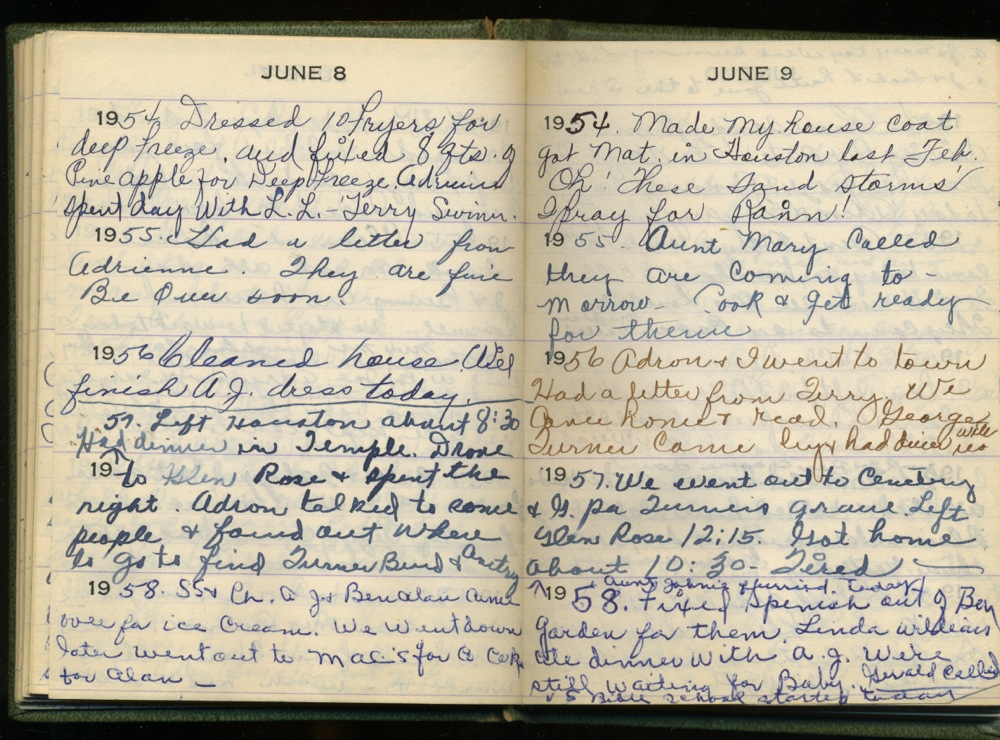 JUNE 8
1954. Dressed 10 fryers for
deep freeze. and fixed 8 qts. of
Pineapple for Deep freeze. Adrienne
spent day With L.L. - Terry Swimn.
1955. Had a letter from
Adrienne. They are fine
Be Over soon.
1956 Cleaned house. Will
finish A J. dress today.
57. Left Houston about 8:30
Had dinner in Temple. Drove
19 to Glen Rose & spent the
night. Adron talked to some
people & found out where
to go to find Turner Burd &
1958. SS & Ch. A J & Ben Alan came
over for ice cream. We went down
later went out to Mac's for a Coke
for Alan —
JUNE 9
1954. Made My house coat
got Mat. in Houston last Feb.
Oh! These Sand storms
I pray for Rann!
1955. Aunt Mary Called
they are Coming to-
morrow- Cook & get ready
for theme
1956 Adron & I went to town
Had a letter from Terry We
Came home & read. George
Turner Came by & had dinner with us
1957. We went out to Cemetery
& G. pa Turners grave. Left
Glen Rose 12:15. Got home
about 10:30- Tired —
& Aunt Johnie today
1958. Fixed Spenish out of Ben
Garden for them. Linda
ate dinner with A. J. We're
still waiting for Baby. Gerald Called
V S Bible school started today